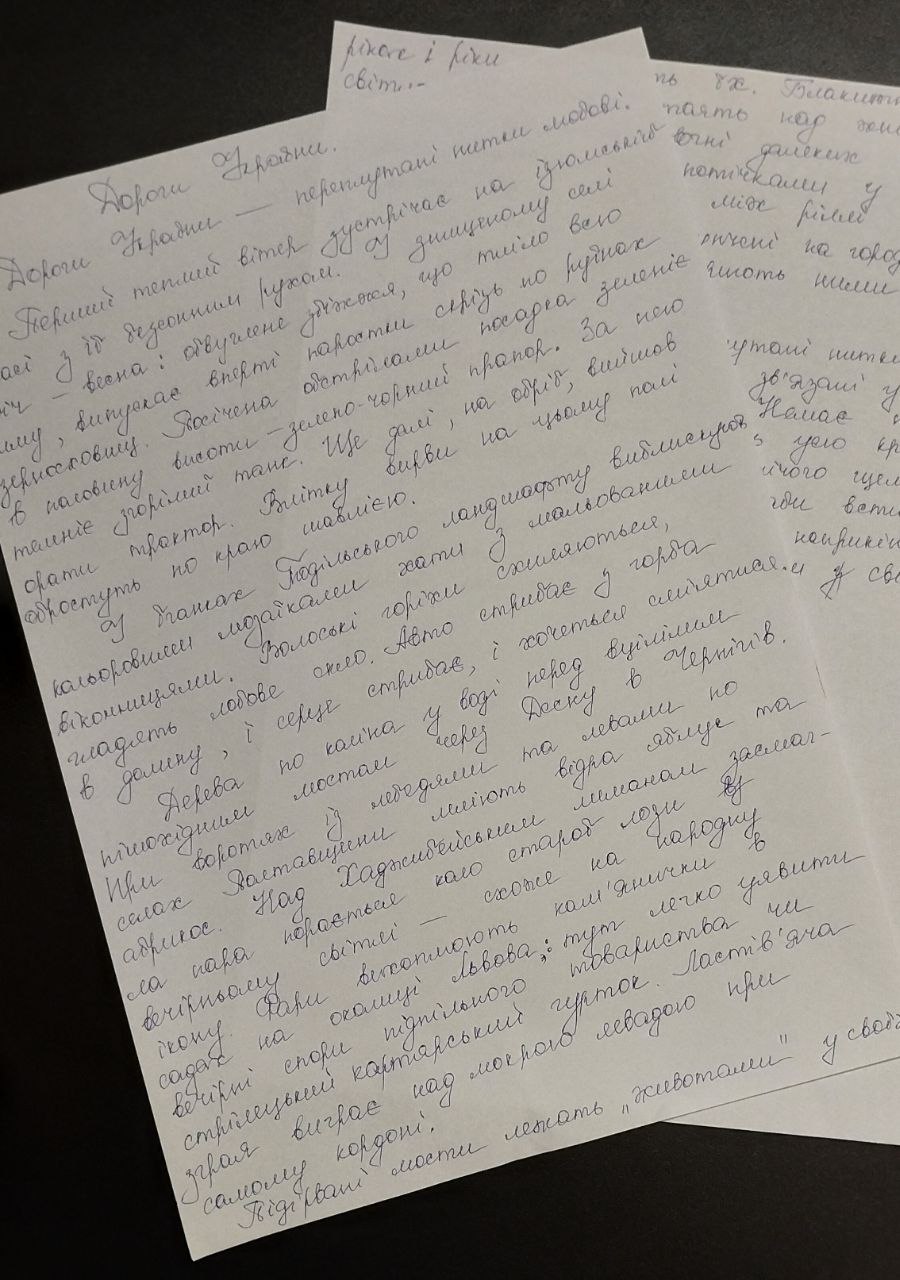 Дороги України.
Дороги України — переплутані нитки любові.
Перший теплий вітер зустрічає на ізюмській
трасі з її безсонним рухом. У знищеному селі
ніч – весна: обвуглене збіжжя, що тліло всю
зиму, випускає вперті паростки скрізь по руїнах
зерносховищ. Посічена обстрілами посадка зеленіє
в половину висоти – зелено-чорний прапор. За нею
темніє згорілий танк. Ще далі, на обрій, вийшов
орати трактор. Влітку вирви на цьому полі
обростуть по краю шавлією.
У баньках Подільського ландшафту виблискують
кольоровими мозаїками хати з мальованими
віконницями. Волоські горіхи схиляються,
гладять лобове скло. Авто стрибає з горба
в долину, і серце стрибає, і хочеться сміятися.
Дерева по коліна у воді перед вцілілим
пішохідним мостом через Десну в Чернігів.
При воротях із лебедями та левами по
селах Полтавщини мліють відра яблук та
абрикос. Над Хаджибейським лиманом засмаг-
ла пара порається коло старої лози у
вечірньому світлі — схоже на народну
ікону. Фари вихоплюють кам'янички в
садах на околиці Львова: тут легко уявити
вечірні спори підпільного товариства чи
стрілецький картярський гурток. Ластів'яча
зграя виграє над мокрою левадою при
самому кордоні.
Підірвані мости лежать „животами" у своїх
річках і ріки
світ...
їх. Блакитні
над
вочні далеких
потічками у
між ріллі
на город
ними
нитки
зв'язані у
Немає
з усю
нічого
наприкін
у сво